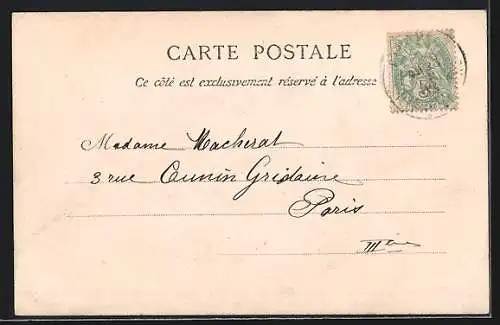 CARTE POSTALE
Ce côté est exclusivement réservé à l'adresse
Madame Macherat
3 rue Cunin Gridaine
Paris
IIIème